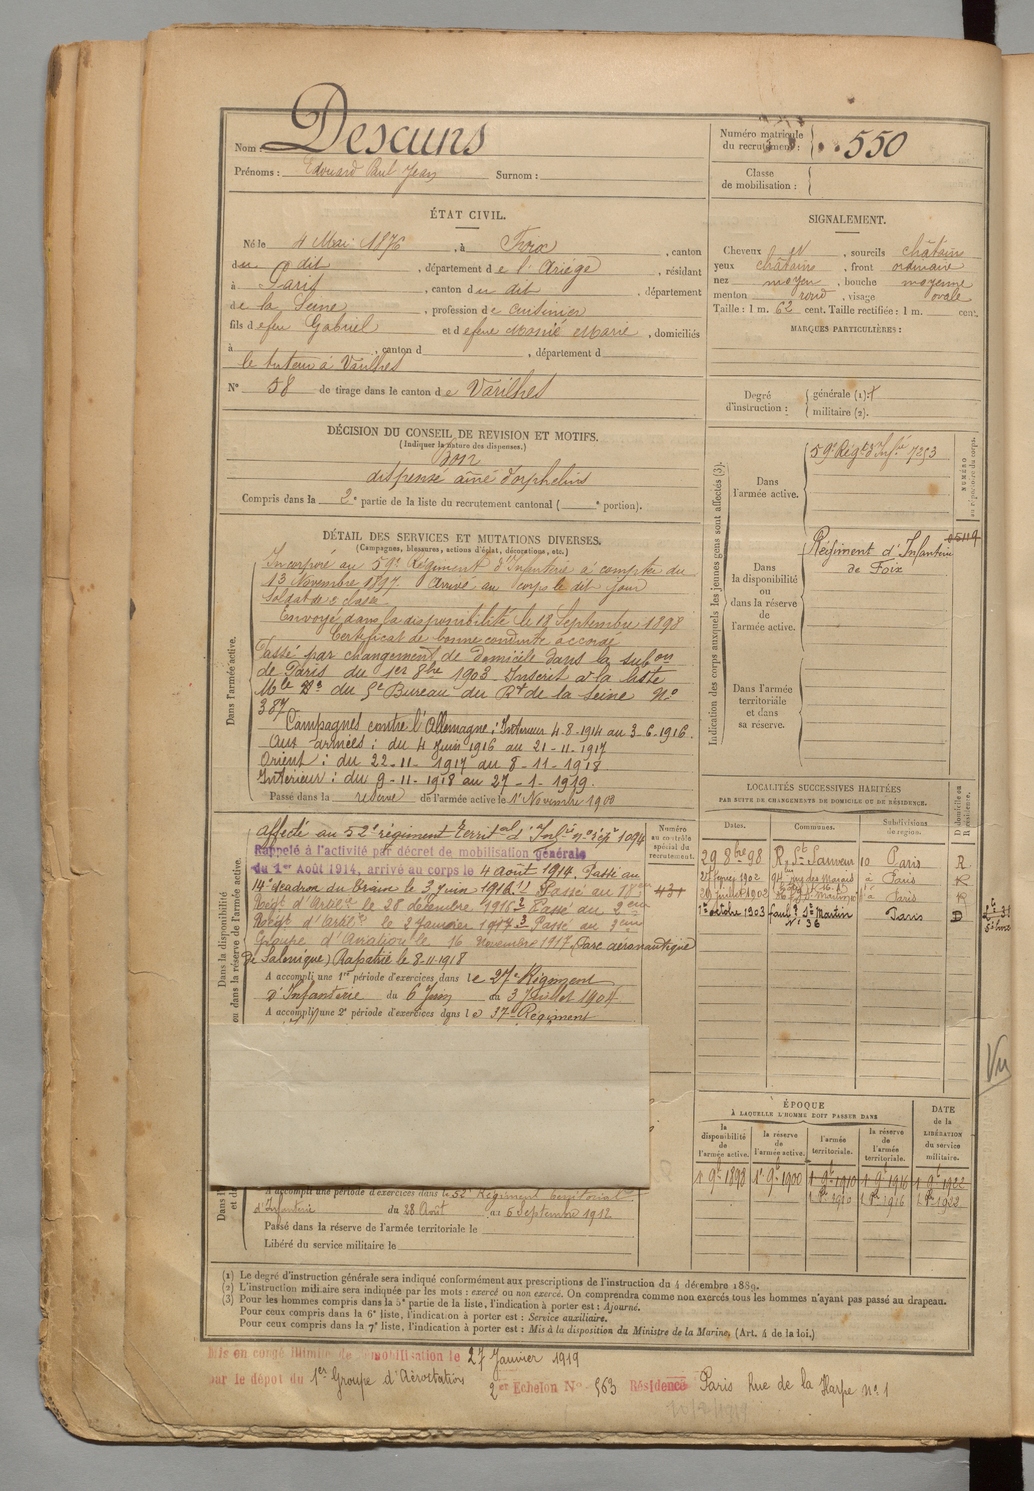 Nom : Descuns
Prénoms : Edouard Paul Jean Surnom :
Numéro matricule du recrutement : 550
Classe de mobilisation :
ÉTAT CIVIL.
Né le 4 Mai 1876, à Foix, canton
du dit, département de l'Ariège, résidant
à Paris, canton du dit, département
de la Seine, profession de cuisinier
fils de feu Gabriel et de feue Marie, domiciliés
à , canton d , département d
le tuteur à Varilhes
N° 58 de tirage dans le canton de Varilhes
SIGNALEMENT.
Cheveux , sourcils châtain
yeux châtains, front ordinaire
nez moyen, bouche moyenne
menton rond, visage ovale
Taille : 1 m. 62 cent. Taille rectifiée : 1 m. cent.
MARQUES PARTICULIÈRES :
Degré d'instruction : générale (1).
militaire (2).
DÉCISION DU CONSEIL DE REVISION ET MOTIFS.
(Indiquer la nature des dispenses.)
Bon
dispense aîné d'orphelins
Compris dans la 2e partie de la liste du recrutement cantonal ( e portion).
DÉTAIL DES SERVICES ET MUTATIONS DIVERSES.
(Campagnes, blessures, actions d'éclat, décorations, etc.)
Dans l'armée active.
Incorporé au 59e Régiment d'Infanterie à compter du
13 Novembre 1897 Arrivé au corps le dit jour
Soldat de 2e classe
Envoyé dans la disponibilité le 18 Septembre 1898
Certificat de bonne conduite accordé
Passé par changement de domicile dans la subon
de Paris du 1er 8bre 1903. Inscrit à la liste
Mle du 5e Bureau du Rt de la Seine No
387
Campagnes contre l'Allemagne : Intérieur 4-8-1914 au 3-6-1916.
Aux armées : du 4 Juin 1916 au 21-11-1917
Orient : du 22-11-1917 au 8-11-1918
Intérieur : du 9-11-1918 au 27-1-1919.
Passé dans la réserve de l'armée active le 1er Novembre 1900
Indication des corps auxquels les jeunes gens sont affectés (3).
NUMÉRO au répertoire du corps.
Dans l'armée active.
59e Régt d'Infie 7253
Dans la disponibilité ou dans la réserve de l'armée active.
Régiment d'Infanterie
de Foix
Dans l'armée territoriale et dans sa réserve.
LOCALITÉS SUCCESSIVES HABITÉES
PAR SUITE DE CHANGEMENTS DE DOMICILE OU DE RÉSIDENCE.
Dates. Communes. Subdivisions de région. D domicile ou R résidence.
29 8bre 98 R. St Sauveur 10 Paris R
1902 94 rue des Marais à Paris R
Juillet 1902 St Martin à Paris R
1er octobre 1903 faub. St Martin Paris D
N° 36
Dans la disponibilité ou dans la réserve de l'armée active.
Numéro au contrôle spécial du recrutement.
Affecté au 52e régiment territal d'Infie no rép 1094
Rappelé à l'activité par décret de mobilisation générale
du 1er Août 1914, arrivé au corps le 4 août 1914. Passé au
14e Escadron du train le 3 Juin 1916. Passé au
Régt d'Artie le 28 décembre 1916. Passé au 2eme
Régt d'Artie le 2 Janvier 1917. Passé au 2eme
Groupe d'Aviation le 16 Novembre 1917 (Parc aéronautique
de Salonique) Rapatrié le 8-11-1918
A accompli une 1re période d'exercices dans le 27e Régiment
d'Infanterie du 6 Juin au 3 Juillet 1904
A accompli une 2e période d'exercices dans le 37e Régiment
Vu
ÉPOQUE
À LAQUELLE L'HOMME DOIT PASSER DANS
la disponibilité de l'armée active. la réserve de l'armée active. l'armée territoriale. la réserve de l'armée territoriale. DATE de la LIBÉRATION du service militaire.
1er 9bre 1898 1er 9bre 1900 1er 9bre 1910 1er 9bre 1916 1er 9bre 1922
1er 1910 1er 1916 1er 1922
A accompli une période d'exercices dans le 52e Régiment territorial
d'Infanterie du 28 Août au 6 Septembre 1912
Passé dans la réserve de l'armée territoriale le
Libéré du service militaire le
(1) Le degré d'instruction générale sera indiqué conformément aux prescriptions de l'instruction du 4 décembre 1889.
(2) L'instruction militaire sera indiquée par les mots : exercé ou non exercé. On comprendra comme non exercés tous les hommes n'ayant pas passé au drapeau.
(3) Pour les hommes compris dans la 5e partie de la liste, l'indication à porter est : Ajourné.
Pour ceux compris dans la 6e liste, l'indication à porter est : Service auxiliaire.
Pour ceux compris dans la 7e liste, l'indication à porter est : Mis à la disposition du Ministre de la Marine. (Art. 4 de la loi.)
Mis en congé illimité de démobilisation le 27 Janvier 1919
par le dépôt du 1er Groupe d'Aérostation 2er Echelon N° 563 Résidence Paris Rue de la Harpe no 1